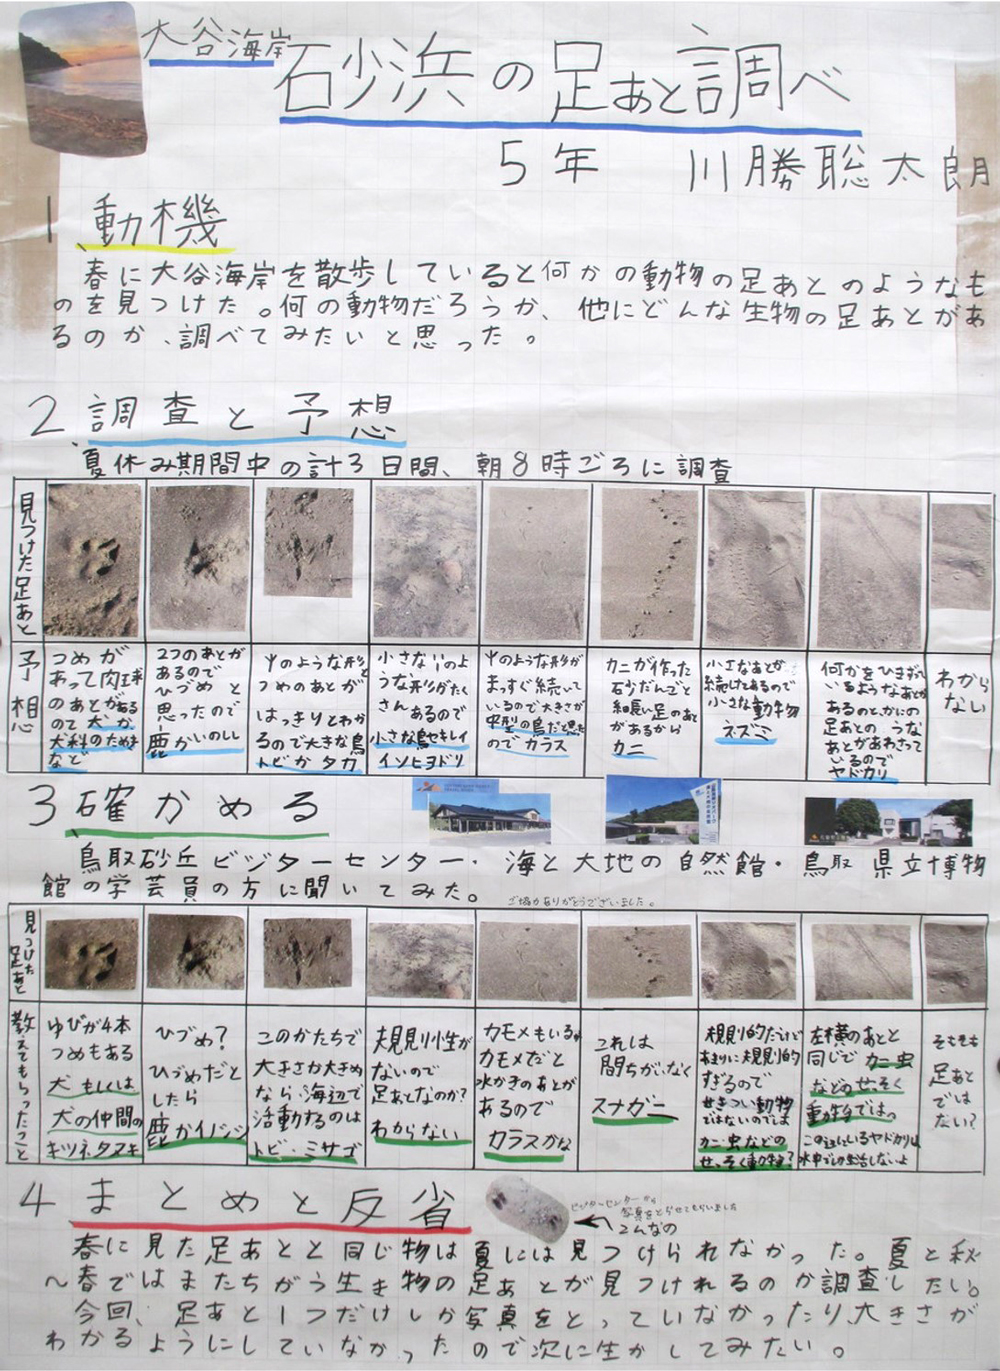 大谷海岸
砂浜の足あと調べ
5年 川勝聡太朗
1、動機
春に大谷海岸を散歩していると何かの動物の足あとのようなも
のを見つけた。何の動物だろうか、他にどんな生物の足あとがあ
るのか、調べてみたいと思った。
2、調査と予想
夏休み期間中の計3日間、朝8時ごろに調査
見つけた足あと
予想
つめが
あって肉球
のあとがある
ので犬か
犬科のたぬき
など
2つのあとが
あるので
ひづめと
思ったので
鹿かいのしし
Ψのような形と
つめのあとが
はっきりとわか
るので大きな鳥
トビかタカ
小さなVのよ
うな形がたく
さんあるので
小さな鳥セキレイ
イソヒヨドリ
Ψのような形が
まっすぐ続いて
いるので大きさが
中型の鳥だと思った
のでカラス
カニが作った
砂だんごと
細長い足のあと
があるから
カニ
小さなあとが
続いてるので
小さな動物
ネズミ
何かをひきずって
いるようなあとが
あるのと、かにの
足あとのような
あとがあわさって
いるので
ヤドカリ
わから
ない
3確かめる
鳥取砂丘ビジターセンター・海と大地の自然館・鳥取県立博物
館の学芸員の方に聞いてみた。
ご協力ありがとうございました。
見つけた足あと
教えてもらったこと
ゆびが4本
つめもある
犬もしくは
犬の仲間の
キツネ、タヌキ
ひづめ?
ひづめだと
したら
鹿かイノシシ
このかたちで
大きさが大きめ
なら、海辺で
活動するのは
トビ・ミサゴ
規則性が
ないので
足あとなのか?
わからない
カモメもいる
カモメだと
水かきのあとが
あるので
カラスかな
これは
間ちがいなく
スナガニ
規則的だけど
あまりに規則的
すぎるので
せきつい動物
ではないのでは
カニ・虫などの
せっそく動物?
左横のあとと
同じで カニ・虫
などのせっそく
動物では。
この辺にいるヤドカリは
水中でしか生活しないよ
そもそも
足あと
では
ない?
4まとめと反省
ビジターセンターから
写真をとらせてもらいました
こんなの
春に見た足あとと同じ物は夏には見つけられなかった。夏と秋
〜春ではまたちがう生き物の足あとが見つけれるのか調査したい。
今回、足あと1つだけしか写真をとっていなかったり、大きさが
わかるようにしていなかったので次に生かしてみたい。